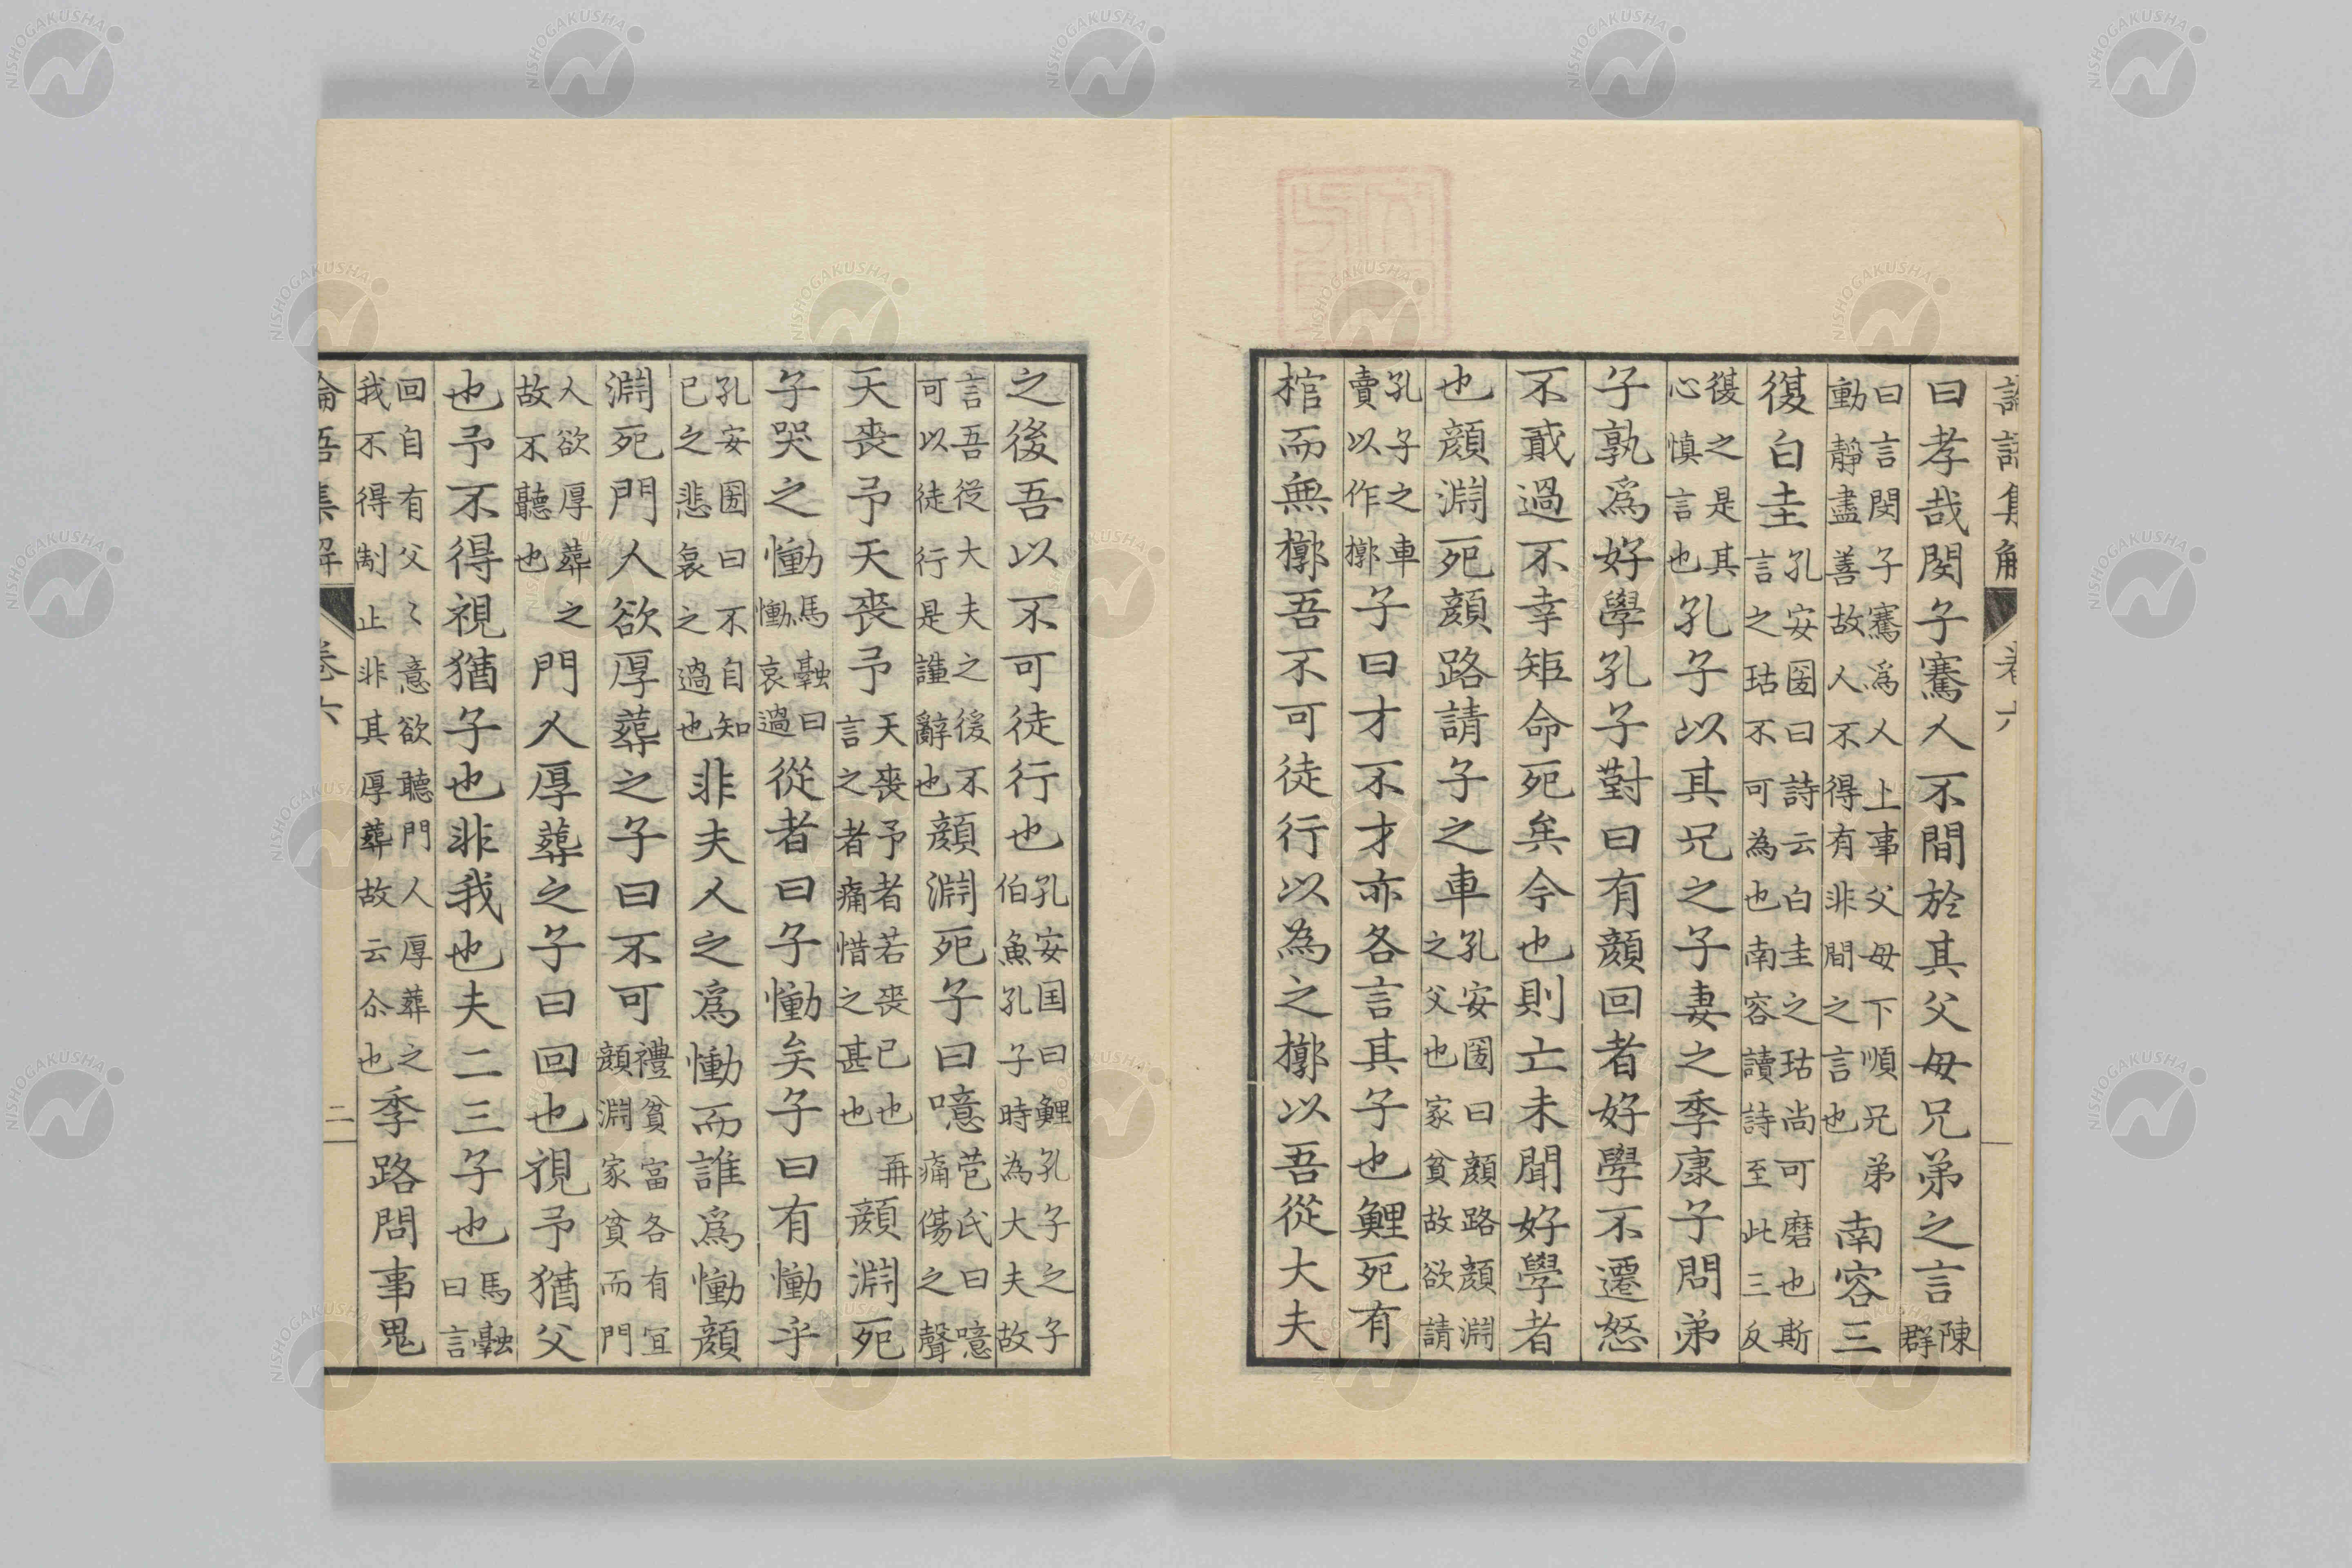 論語集解 卷六
曰孝哉閔子騫人不間於其父母兄弟之言陳群
曰言閔子騫爲人上事父母下順兄弟動靜盡善故人不得有非間之言也南容三
復白圭孔安國曰詩云白圭之玷尚可磨也斯言之玷不可為也南容讀詩至此三反
復之是其心慎言也孔子以其兄之子妻之季康子問弟
子孰爲好學孔子對曰有顔回者好學不遷怒
不貳過不幸短命死矣今也則亡未聞好學者
也顔淵死顔路請子之車孔安國曰顔路顔淵之父也家貧故欲請
孔子之車賣以作槨子曰才不才亦各言其子也鯉死有
棺而無槨吾不可徒行以為之槨以吾從大夫
之後吾以不可徒行也孔安国曰鯉孔子之子伯魚孔子時為大夫故
言吾從大夫之後不可以徒行是謹辭也顔淵死子曰噫苞氏曰噫痛傷之聲
天喪予天喪予天喪予者若喪已也再言之者痛惜之甚也顔淵死
子哭之慟馬融曰慟哀過從者曰子慟矣子曰有慟乎
孔安國曰不自知已之悲哀之過也非夫人之爲慟而誰爲慟顔
淵死門人欲厚葬之子曰不可禮貧富各有宜顔淵家貧而門
人欲厚葬之故不聽也門人厚葬之子曰回也視予猶父
也予不得視猶子也非我也夫二三子也馬融曰言
回自有父〻意欲聽門人厚葬之我不得制止非其厚葬故云尒也季路問事鬼
論語集解 卷六 二
NISHOGAKUSHA